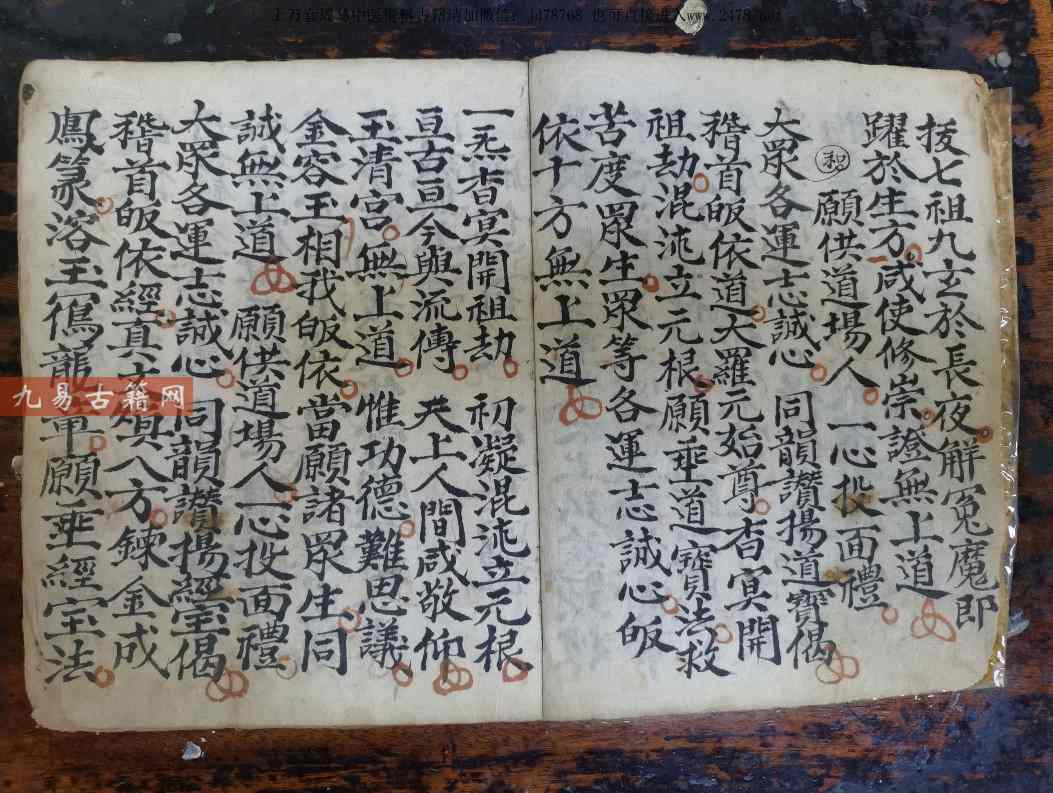 拔七祖九玄於長夜解冤魔即
躍於生方咸使修崇證無上道
和 願供道場人一心投面禮
大眾各運志誠心 同韻讚揚道寳偈
稽首皈依道大羅元始尊杳冥開
祖劫混沌立元根願垂道寶法救
苦度眾生眾等各運志誠心皈
依十方無上道
一炁杳冥開祖劫 初凝混沌立元根
亘古亘今與流傳 天上人間咸敬仰
玉清宮無上道 惟功德難思議
金容玉相我皈依當願諸眾生同
誠無上道 願供道場人一心投面禮
大眾各運志誠心 同韻讚揚經宝偈
稽首皈依經真八方鍊金成
鳳篆溶玉龍章願垂經宝法
九易古籍网